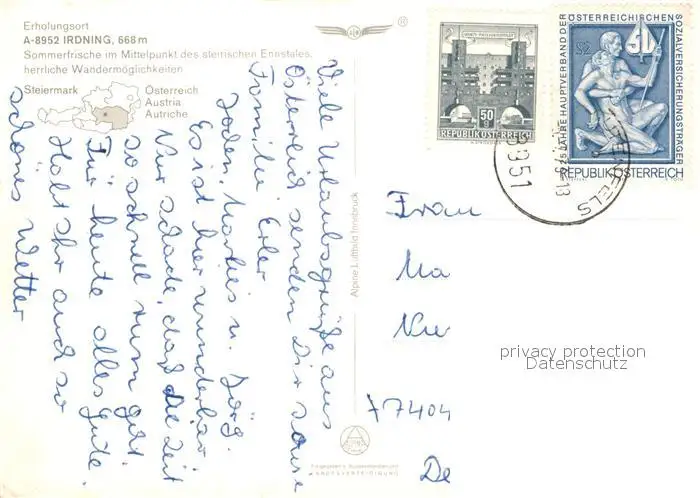 Erholungsort
A-8952 IRDNING, 668 m
Sommerfrische im Mittelpunkt des steirischen Ennstales,
herrliche Wandermöglichkeiten
Steiermark
Österreich
Austria
Autriche
Viele Urlaubsgrüße aus
Österreich senden Dir sowie
Familie Erler
Es ist hier wunderbar
Nur schade, daß die Zeit
so schnell rum geht.
Für heute alles Gute.
Habt Ihr auch so
schönes Wetter
Alpine Luftbild Innsbruck
50 g
REPUBLIK ÖSTERREICH
25 JAHRE HAUPTVERBAND DER ÖSTERREICHISCHEN SOZIALVERSICHERUNGSTRÄGER
S 2
REPUBLIK ÖSTERREICH
8951
Frau
Ma
77404
De
privacy protection
Datenschutz
LANDESVERTEIDIGUNG
®